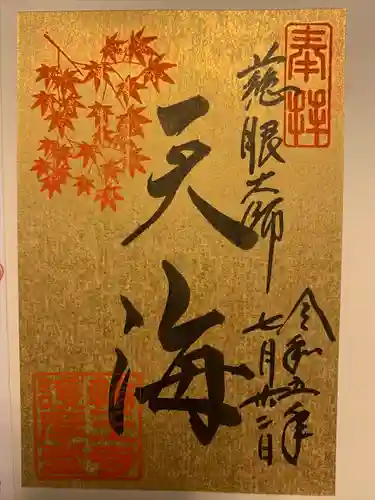 奉拝
慈眼大師
天海
令和五年
七月廿二日